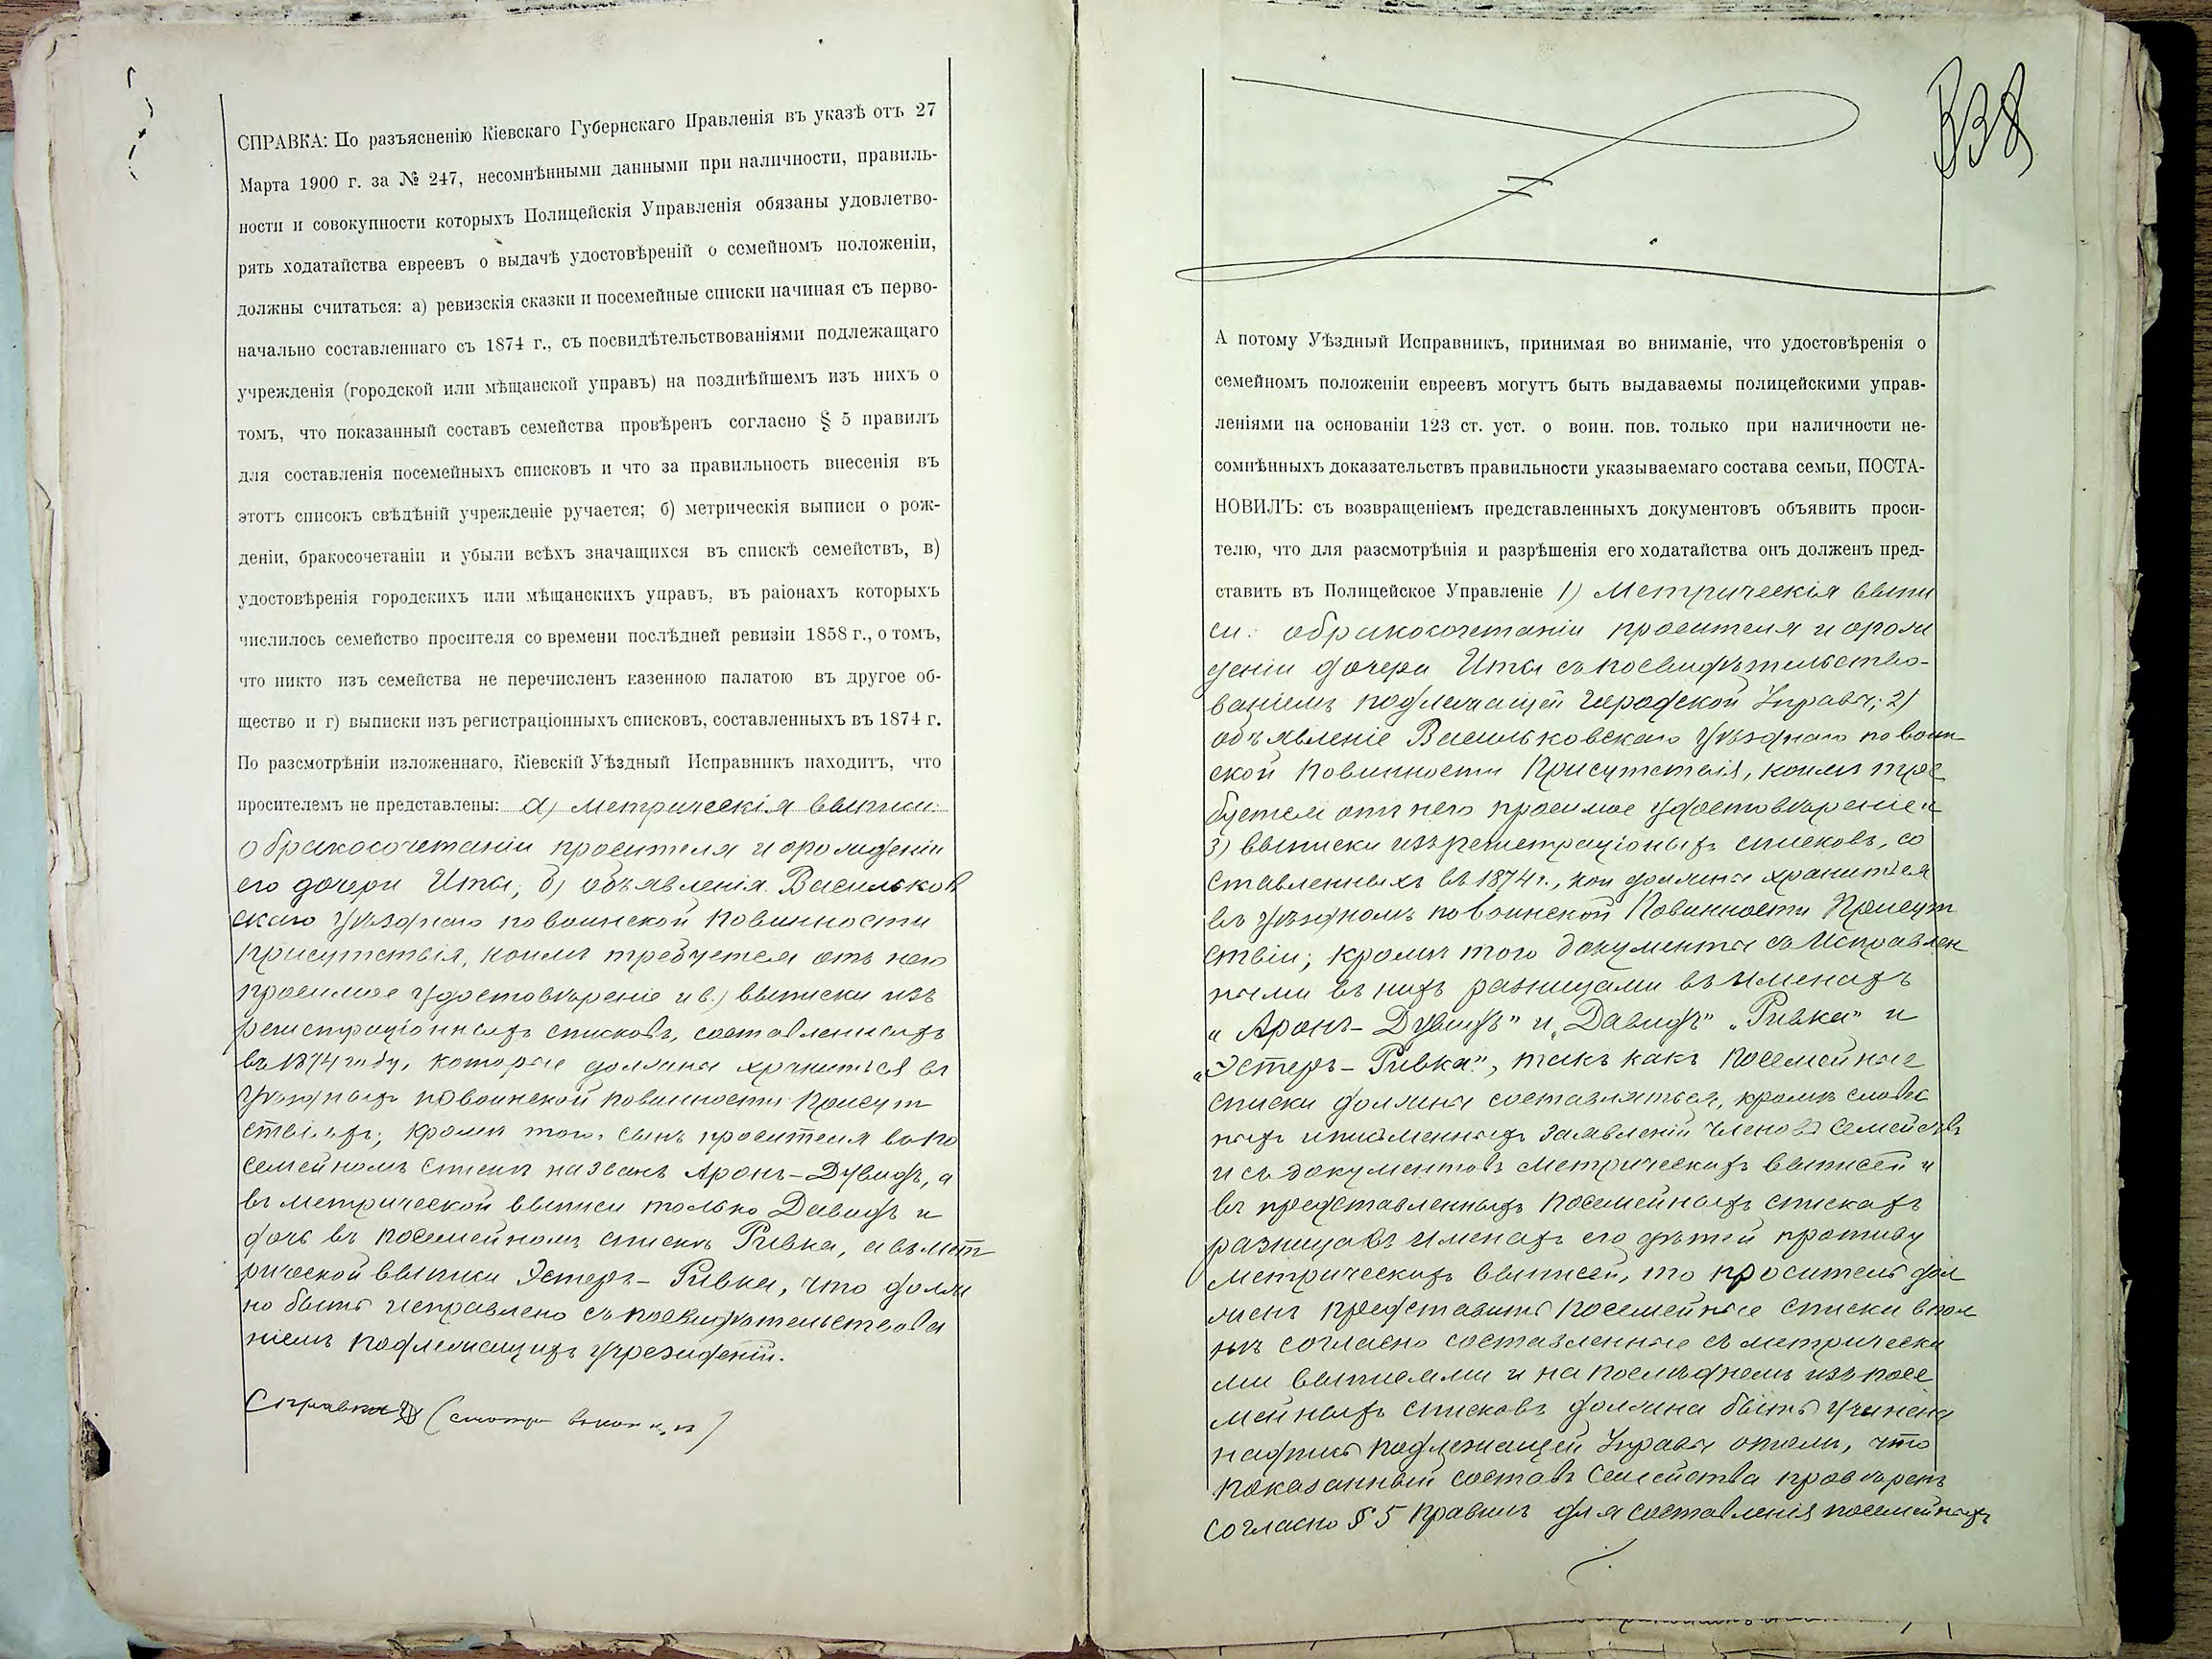 СПРАВКА: По разъясненію Кіевскаго Губернскаго Правленія въ указѣ отъ 27
Марта 1900 г. за № 247, несомнѣнными данными при наличности, правиль-
ности и совокупности которыхъ Полицейскія Управленія обязаны удовлетво-
рять ходатайства евреевъ о выдачѣ удостовѣреній о семейномъ положеніи,
должны считаться: а) ревизскія сказки и посемейные списки начиная съ перво-
начально составленнаго съ 1874 г., съ посвидѣтельствованіями подлежащаго
учрежденія (городской или мѣщанской управъ) на позднѣйшемъ изъ нихъ о
томъ, что показанный составъ семейства провѣренъ согласно § 5 правилъ
для составленія посемейныхъ списковъ и что за правильность внесенія въ
этотъ списокъ свѣдѣній учрежденіе ручается; б) метрическія выписи о рож-
деніи, бракосочетаніи и убыли всѣхъ значащихся въ спискѣ семействъ, в)
удостовѣренія городскихъ или мѣщанскихъ управъ, въ раіонахъ которыхъ
числилось семейство просителя со времени послѣдней ревизіи 1858 г., о томъ,
что никто изъ семейства не перечисленъ казенною палатою въ другое об-
щество и г) выписки изъ регистраціонныхъ списковъ, составленныхъ въ 1874 г.
По разсмотрѣніи изложеннаго, Кіевскій Уѣздный Исправникъ находитъ, что
просителемъ не представлены: а) метрическія выписи:
о бракосочетаніи просителя и о рожденіи
его дочери Иты; б) объявленія Васильков
скаго Уѣзднаго по воинской повинности
Присутствія, коимъ требуется отъ него
просимое удостовѣреніе и в.) выписки изъ
регистраціонныхъ списковъ, составленныхъ
въ 1874 году, которые должны храниться въ
Уѣздныхъ по воинской повинности Присут
ствіяхъ; кромѣ того, сынъ просителя въ по
семейномъ спискѣ названъ Аронъ-Дувидъ, а
въ метрической выписи только Давидъ и
дочь въ посемейномъ спискѣ Ривка, а въ мет
рической выписи Эстеръ-Ривка, что долж
но быть исправлено съ посвидѣтельствова
ніемъ подлежащихъ учрежденій.
Справка (смотри въ концѣ)
338
А потому Уѣздный Исправникъ, принимая во вниманіе, что удостовѣренія о
семейномъ положеніи евреевъ могутъ быть выдаваемы полицейскими управ-
леніями на основаніи 123 ст. уст. о воин. пов. только при наличности не-
сомнѣнныхъ доказательствъ правильности указываемаго состава семьи, ПОСТА-
НОВИЛЪ: съ возвращеніемъ представленныхъ документовъ объявить проси-
телю, что для разсмотрѣнія и разрѣшенія его ходатайства онъ долженъ пред-
ставить въ Полицейское Управленіе 1) Метрическія выпи
си: о бракосочетаніи просителя и о рож
деніи дочери Иты съ посвидѣтельство-
ваніемъ подлежащей Городской Управы; 2)
объявленіе Васильковскаго Уѣзднаго по воин
ской повинности Присутствія, коимъ тре
буется отъ него просимое удостовѣреніе и
3) выписки изъ регистраціонныхъ списковъ, со
ставленныхъ въ 1874 г., кои должны храниться
въ Уѣздномъ по воинской Повинности Присут
ствіи; кромѣ того документы съ исправлен
ными въ нихъ разницами въ именахъ
„Аронъ-Дувидъ" и „Давидъ" „Ривка" и
„Эстеръ-Ривка", такъ какъ посемейные
списки должны составляться, кромѣ словес
ныхъ и письменныхъ заявленій членовъ семействъ
и съ документовъ метрическихъ выписей и
въ представленныхъ посемейныхъ спискахъ
разница въ именахъ его дѣтей противу
метрическихъ выписей, то проситель дол
женъ представить посемейные списки впол
нѣ согласно составленные съ метрически
ми выписями и на послѣднемъ изъ посе
мейныхъ списковъ должна быть учинена
надпись подлежащей Управы о томъ, что
показанный составъ семейства провѣренъ
согласно § 5 правилъ для составленія посемейныхъ